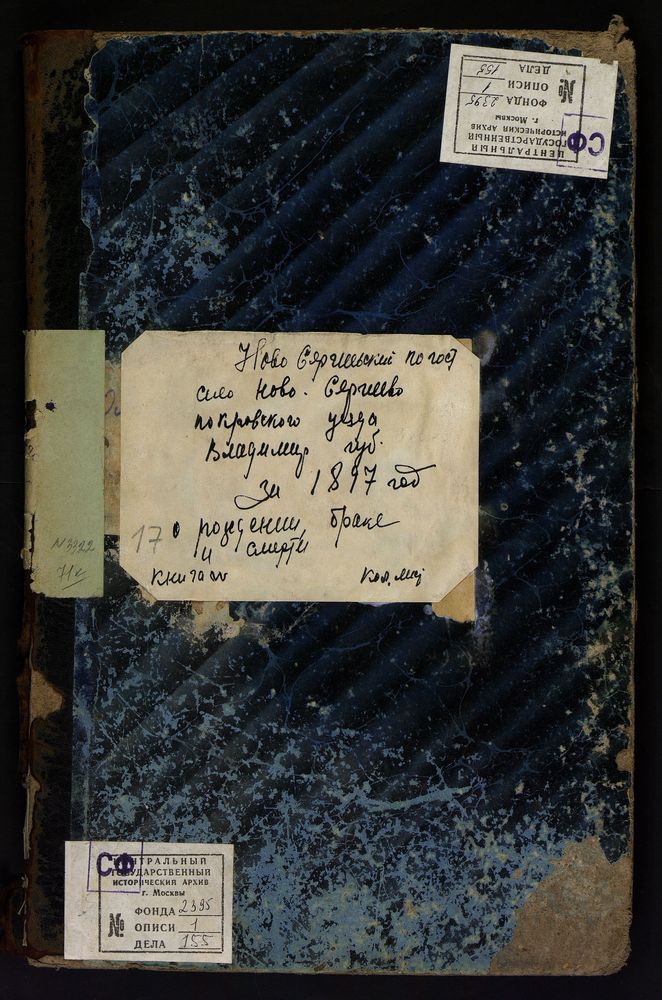 СФ
ЦЕНТРАЛЬНЫЙ
ГОСУДАРСТВЕННЫЙ
ИСТОРИЧЕСКИЙ АРХИВ
г. Москвы
№
ФОНДА 2395
ОПИСИ 1
ДЕЛА 155
Ново Сергиевский погост
село Ново-Сергиево
покровского уезда
Владимир губ.
за 1897 год
17 о рождении, браке
и смерти
Книга
N 3922
СФ
ЦЕНТРАЛЬНЫЙ
ГОСУДАРСТВЕННЫЙ
ИСТОРИЧЕСКИЙ АРХИВ
г. Москвы
№
ФОНДА 2395
ОПИСИ 1
ДЕЛА 155